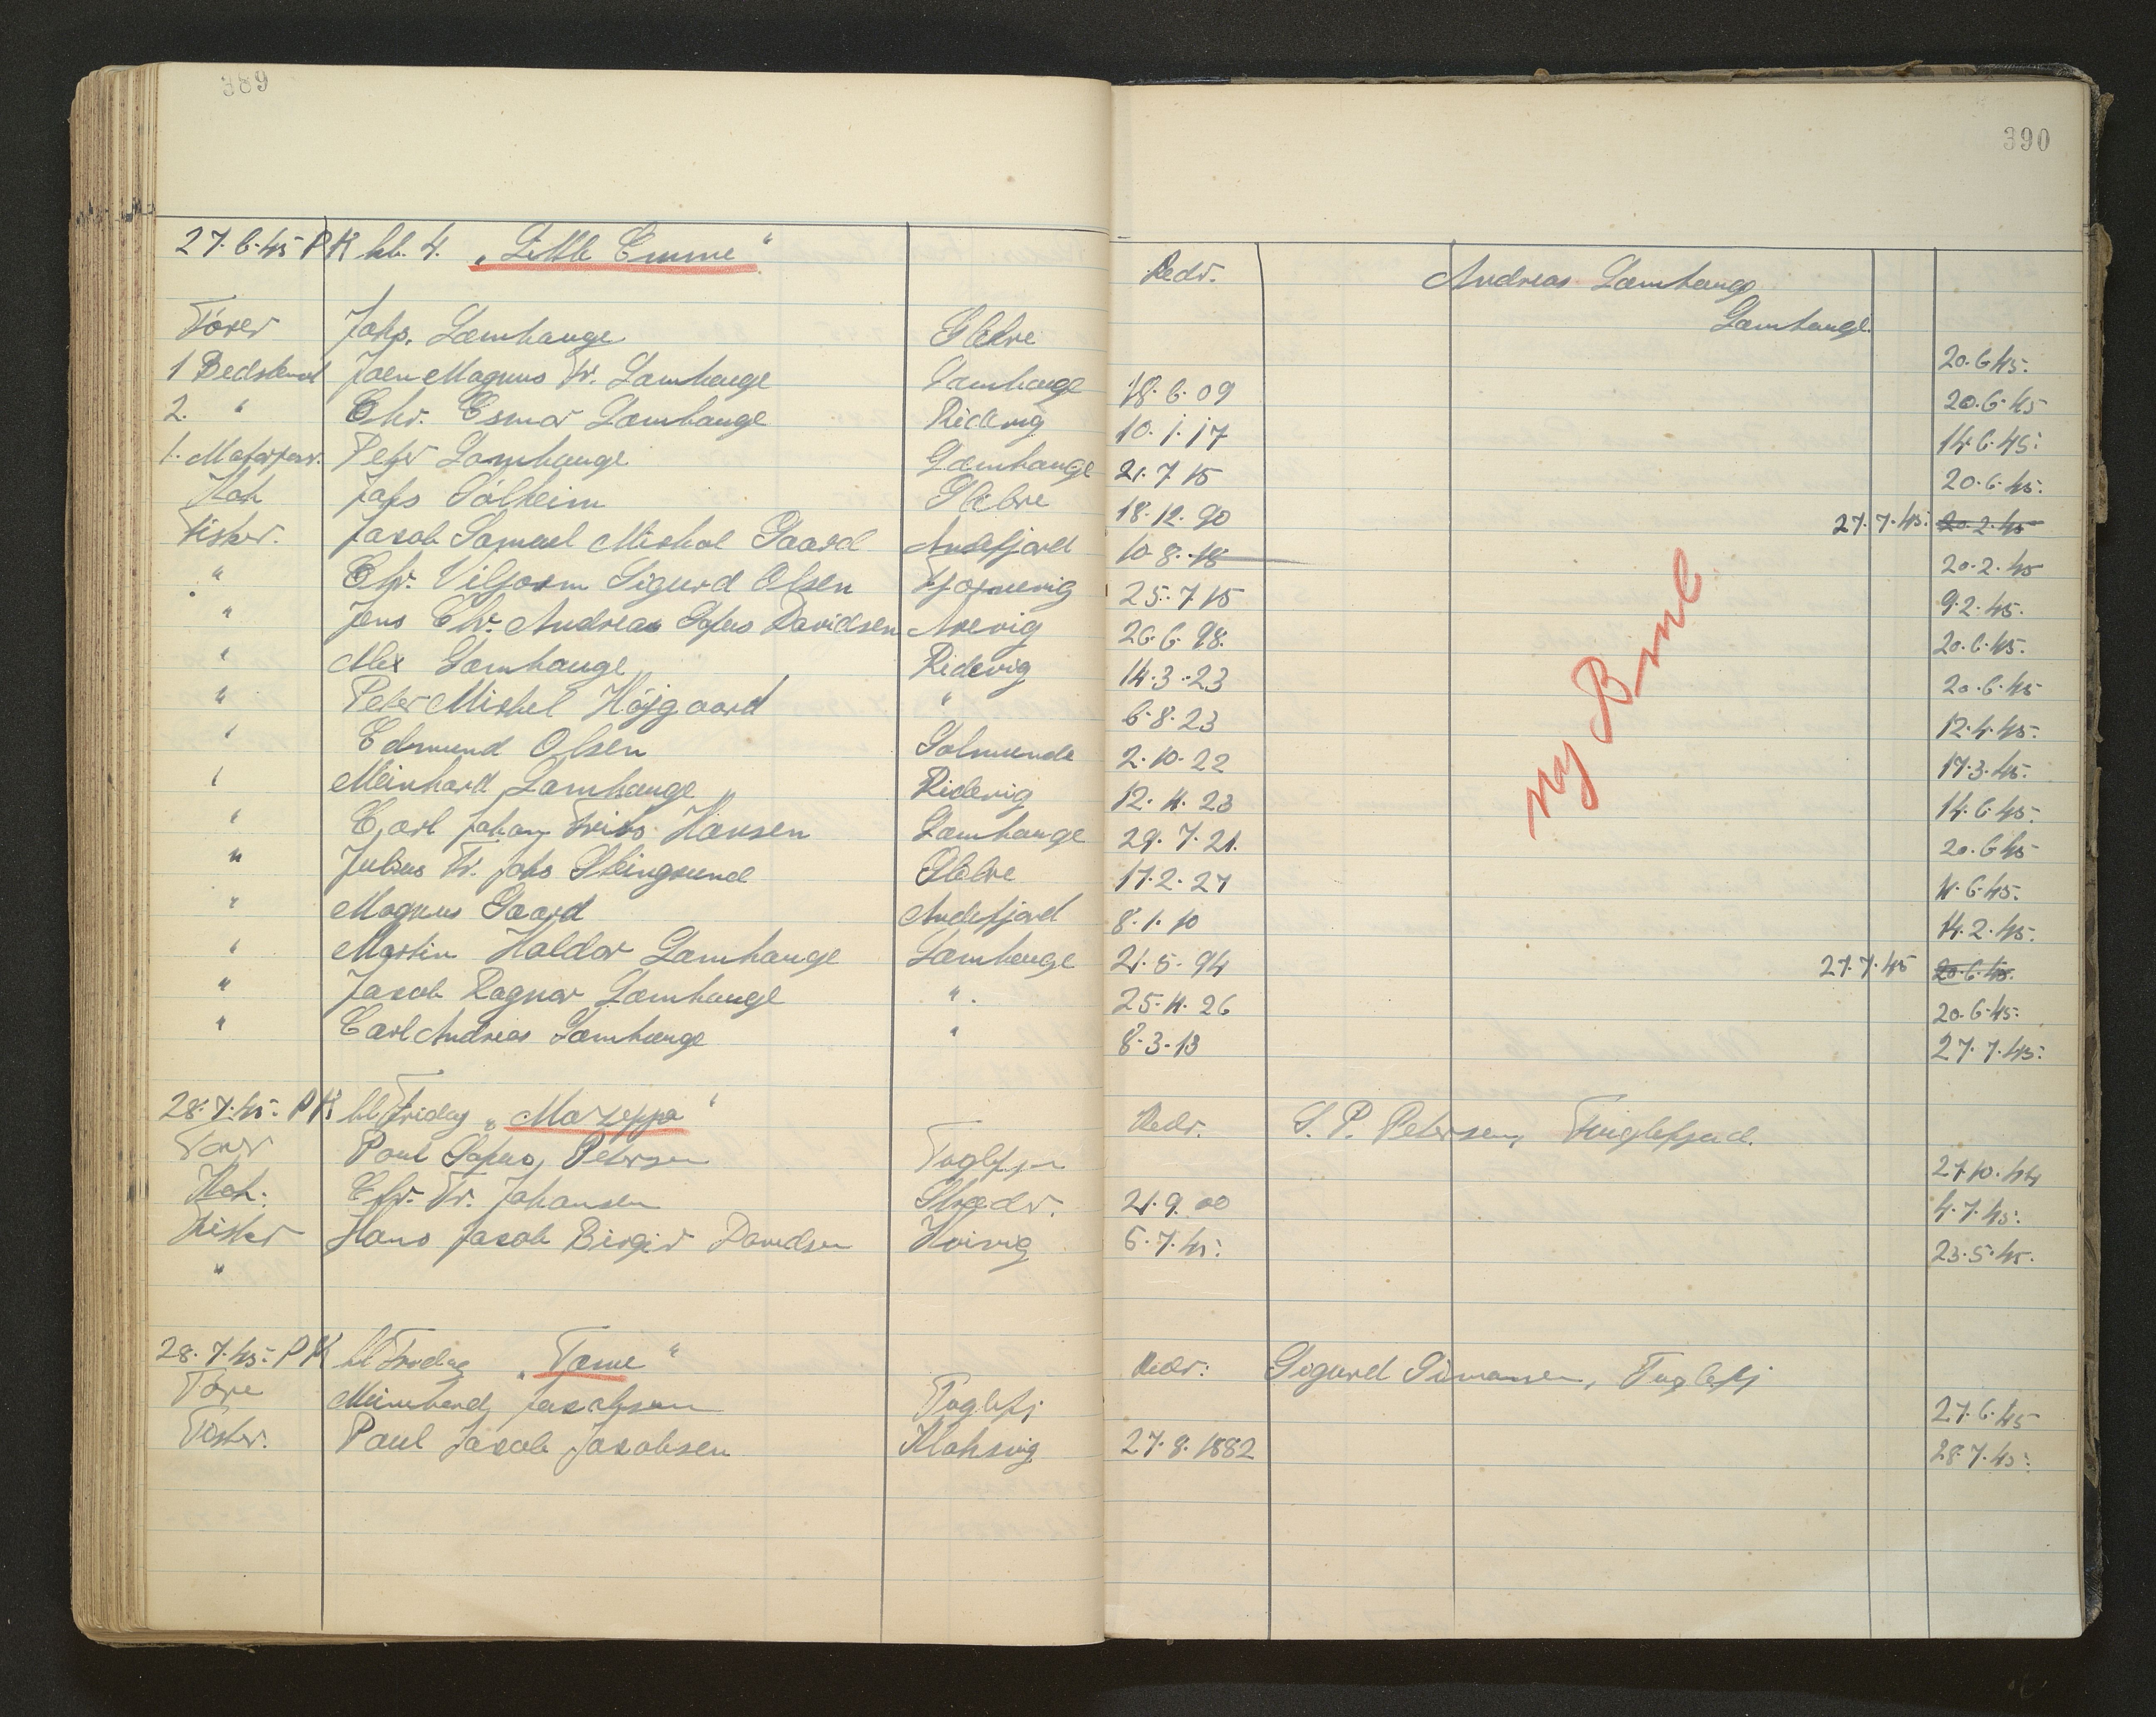 389
390
27.6.45 PK kl. 4. "Little Emme"
Redr. Andreas Lamhauge
Lamhauge
Förer Johs. Lamhauge Glebre 20.6.45.
1 Bedstmd Joen Magnus Fr. Lamhauge Lamhauge 18.6.09 20.6.45
2. " Chr. Esmar Lamhauge Ridevig 10.1.17 14.6.45.
1. Motorpas. Peter Lamhauge Lamhauge 21.7.15 20.6.45.
Kok Johs Sólheim Glebre 18.12.90 27.7.45. 20.2.45
Fisker. Jacob Samuel Mishal Gaard Andefjord 10.8.18 20.2.45
" Chr. Viljorm Sigurd Olsen Tjörnevig 25.7.15 9.2.45.
" Jens Chr. Andreas Sofus Davidsen Arevig 26.6.98. 20.6.45.
" Alex Lamhauge Ridevig 14.3.23 20.6.45
" Peter Mishel Höjgaard " 6.8.23 12.4.45.
" Edmund Olsen Solmunde 2.10.22 17.3.45.
" Meinhard Lamhauge Ridevig 12.4.23 14.6.45.
" Carl Johan Friis Hansen Lamhauge 29.7.21. 20.6.45
" Julius Fr. Johs Steingrund Glebre 17.2.27 4.6.45.
" Magnus Gaard Andefjord 8.1.10 14.2.45.
" Martin Haldor Lamhauge Lamhauge 21.5.94 27.7.45 20.6.45.
" Jacob Ragnar Lamhauge ". 25.4.26 20.6.45.
" Carl Andreas Lamhauge " 8.3.13 27.7.45.
ny B
28.7.45. PK kl Fridag "Mazeppa" Redr. S. P. Petersen, Fuglefjord.
Förer Poul Sofus Petersen Fuglefj 27.10.44
Kok. Chr. Fr. Johansen 21.9.00 4.7.45.
Fisker Hans Jacob Birgir Davidsen Hvivig 6.7.45. 23.5.45.
"
28.7.45. PK kl Fredag "Tame" Redr: Sigurd Simonsen, Fuglefj
Före Meinhard Jacobsen Fuglefj 27.6.45
Fisker. Paul Jacob Jacobsen Klaksvig 27.8.1882 28.7.45.